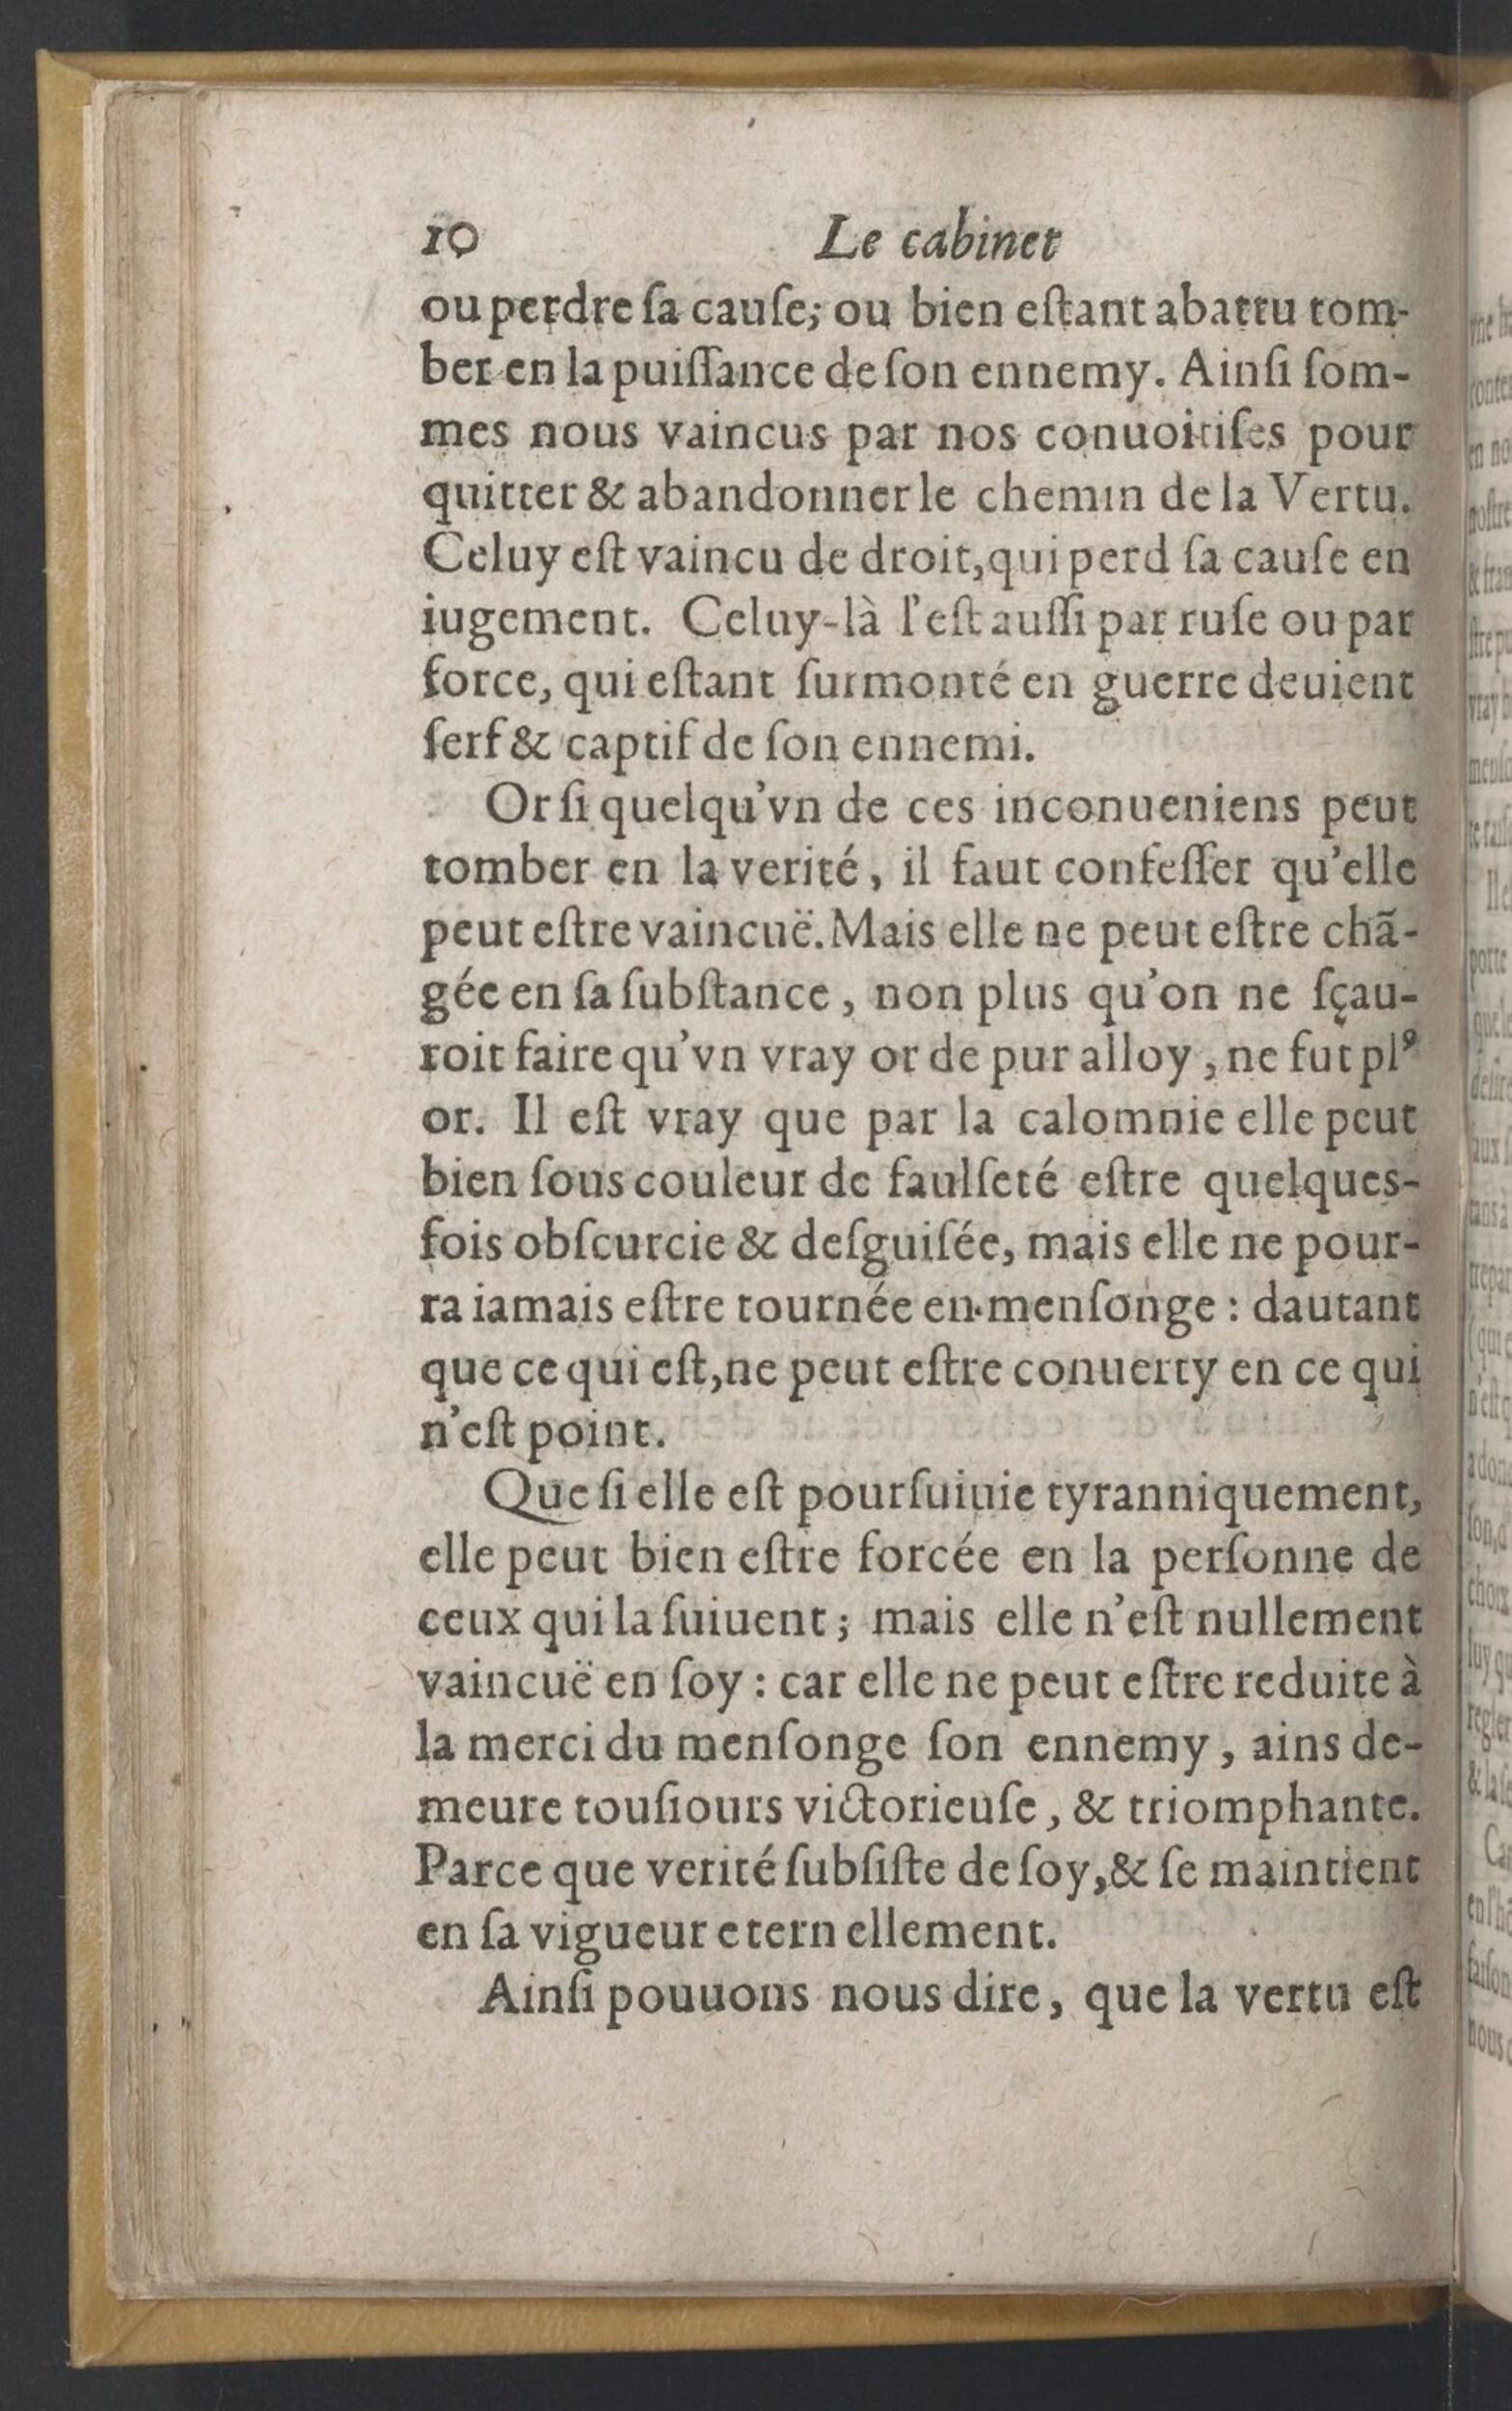 10 Le cabinet
ou perdre ſa cauſe; ou bien eſtant abattu tom-
ber en la puiſſance de ſon ennemy. Ainſi ſom-
mes nous vaincus par nos conuoitiſes pour
quitter & abandonner le chemin de la Vertu.
Celuy eſt vaincu de droit, qui perd ſa cauſe en
iugement. Celuy-là l'eſt auſſi par ruſe ou par
force, qui eſtant ſurmonté en guerre deuient
ſerf & captif de ſon ennemi.
Or ſi quelqu'vn de ces inconueniens peut
tomber en la verité, il faut confeſſer qu'elle
peut eſtre vaincuë. Mais elle ne peut eſtre chã-
gée en ſa ſubſtance, non plus qu'on ne ſçau-
roit faire qu'vn vray or de pur alloy, ne fut plꝰ
or. Il eſt vray que par la calomnie elle peut
bien ſous couleur de faulſeté eſtre quelques-
fois obſcurcie & deſguiſée, mais elle ne pour-
ra iamais eſtre tournée en menſonge : dautant
que ce qui eſt, ne peut eſtre conuerty en ce qui
n'eſt point.
Que ſi elle eſt pourſuiuie tyranniquement,
elle peut bien eſtre forcée en la perſonne de
ceux qui la ſuiuent ; mais elle n'eſt nullement
vaincuë en ſoy : car elle ne peut eſtre reduite à
la merci du menſonge ſon ennemy, ains de-
meure touſiours victorieuſe, & triomphante.
Parce que verité ſubſiſte de ſoy, & ſe maintient
en ſa vigueur eternellement.
Ainſi pouuons nous dire, que la vertu eſt